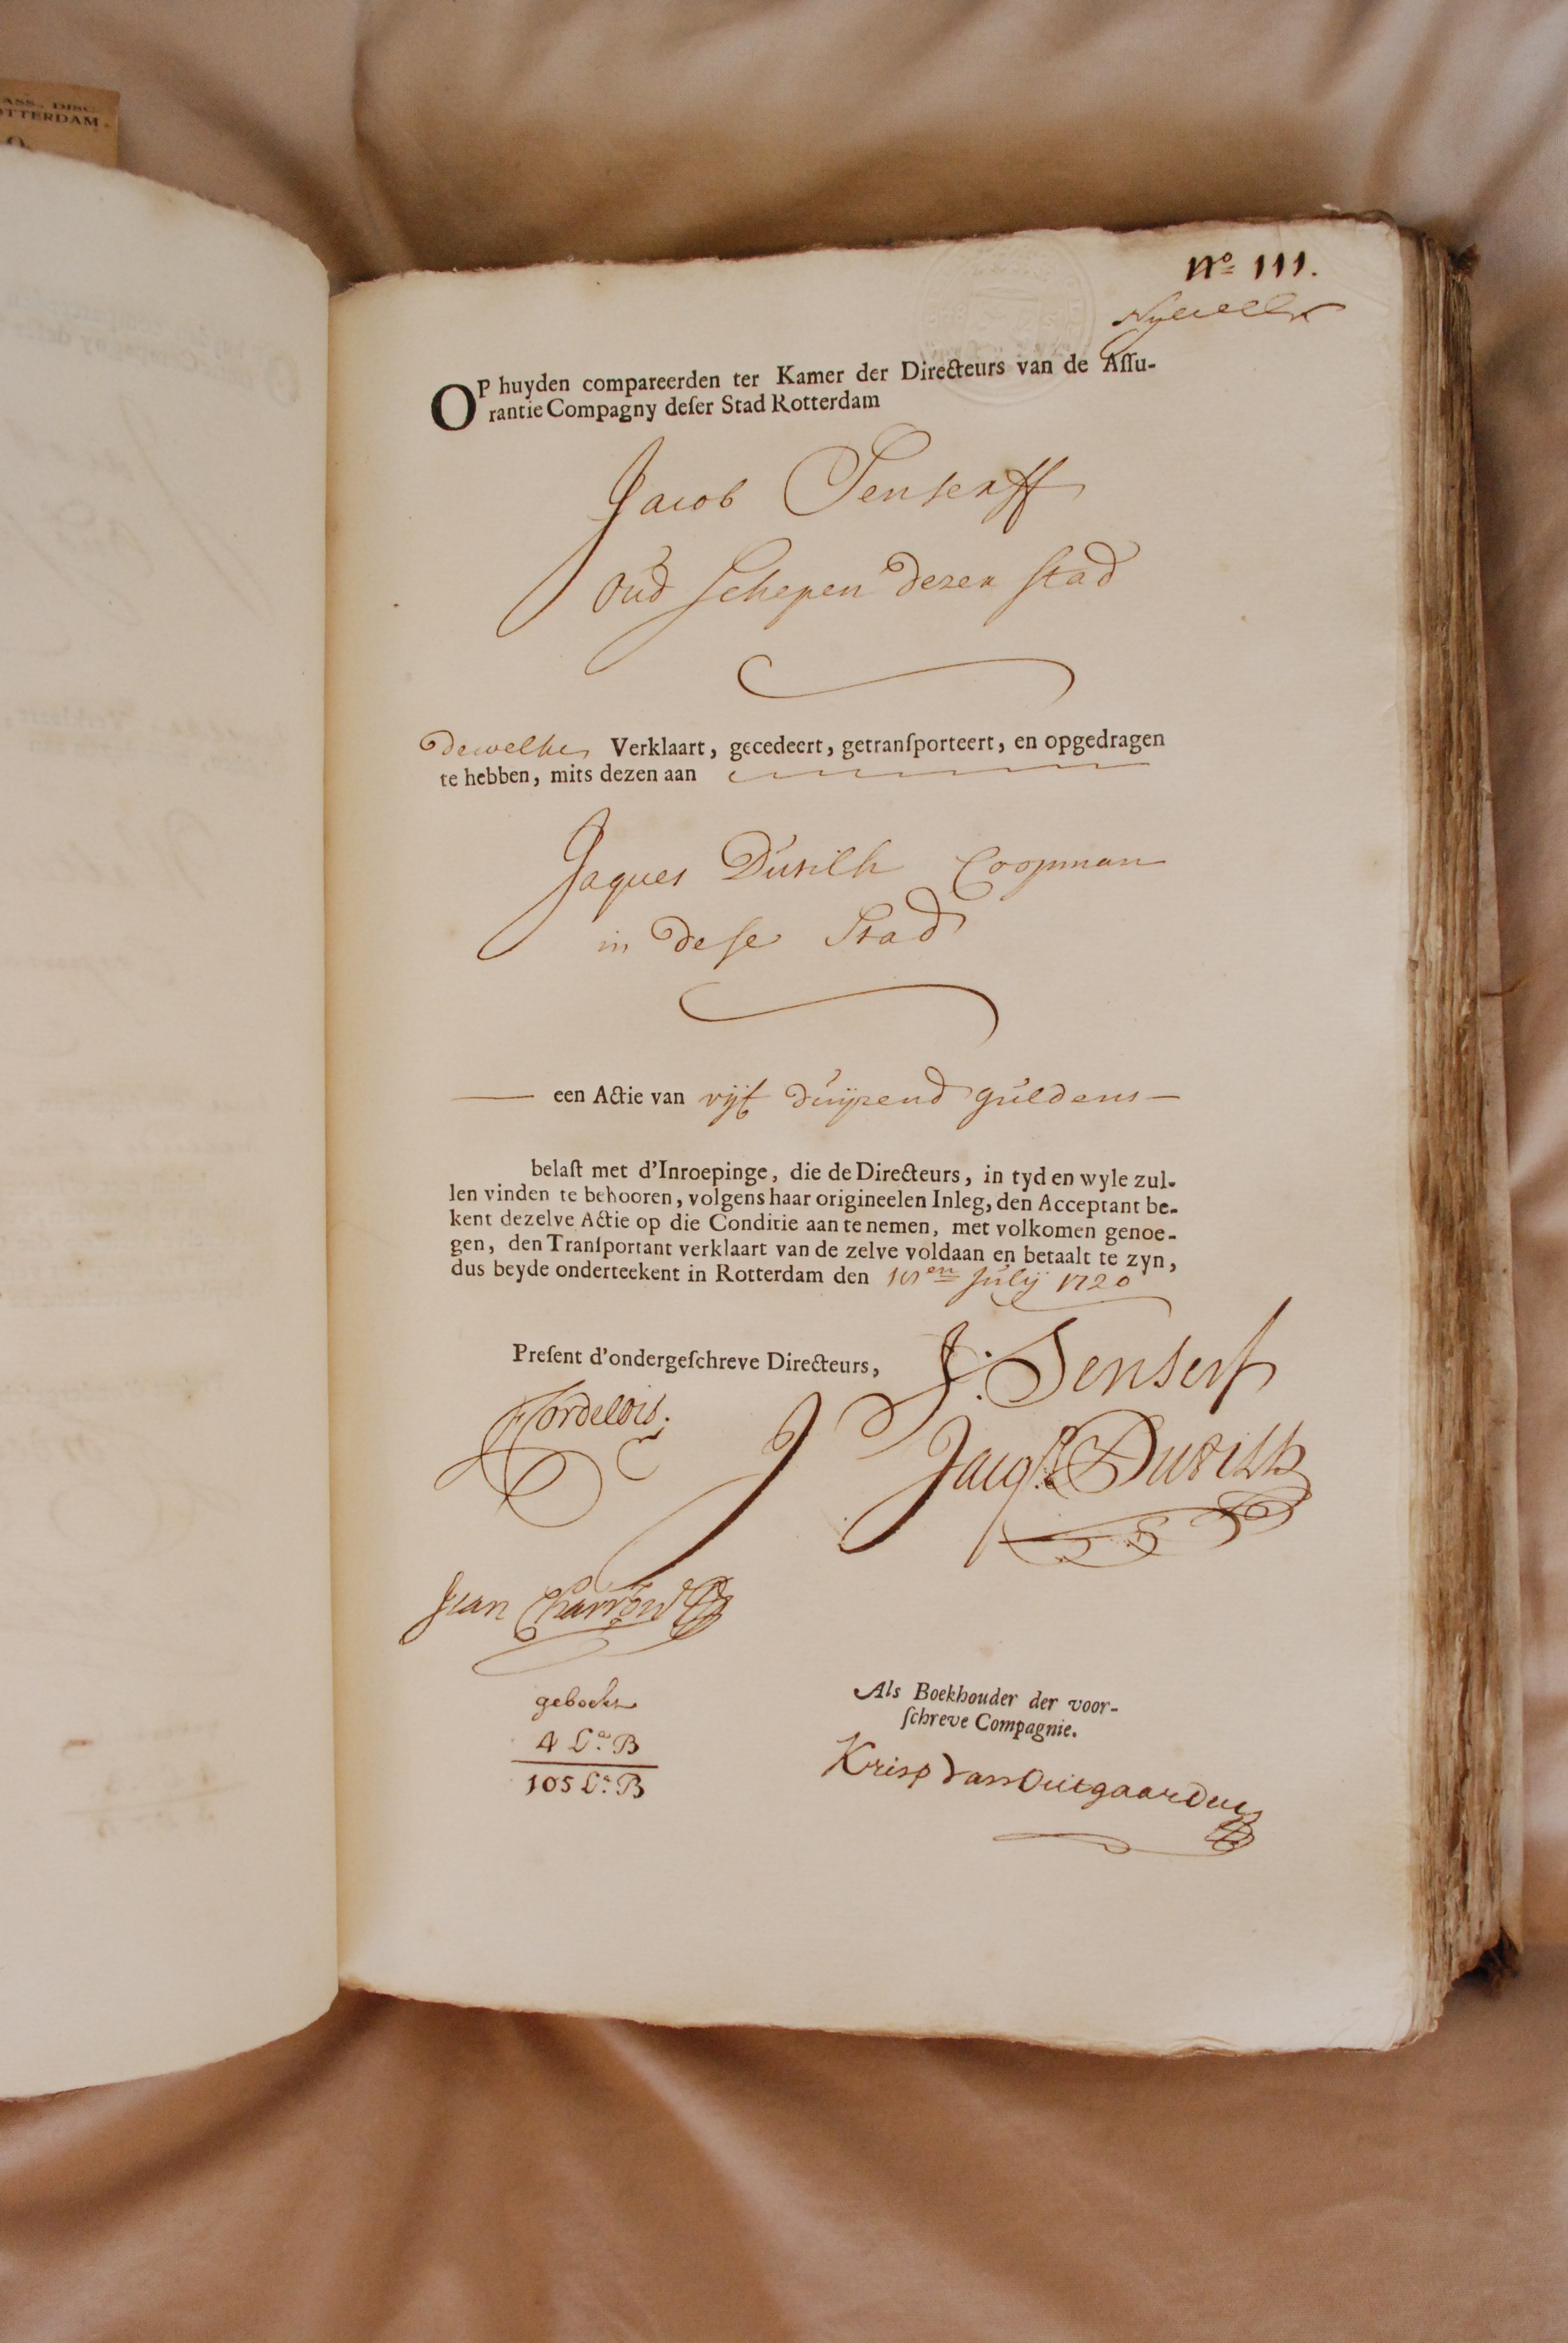 ASS., DISC.
OTTERDAM
No 111.
OP huyden compareerden ter Kamer der Directeurs van de Aſſu-
rantie Compagny deſer Stad Rotterdam
Jacob Senserff
Oud Schepen dezer stad
Dewelke Verklaart, gecedeert, getranſporteert, en opgedragen
te hebben, mits dezen aan
Jaques Dutilh Coopman
in dese Stad
een Actie van vijf duijzend guldens
belaſt met d'Inroepinge, die de Directeurs, in tyd en wyle zul-
len vinden te behooren, volgens haar origineelen Inleg, den Acceptant be-
kent dezelve Actie op die Conditie aan te nemen, met volkomen genoe-
gen, den Tranſportant verklaart van de zelve voldaan en betaalt te zyn,
dus beyde onderteekent in Rotterdam den July 1720
Preſent d'ondergeſchreve Directeurs,
J. Senserf
Jacqs Dutilh
Jean Charron
geboekt
4 La B
105 La B
Als Boekhouder der voor-
ſchreve Compagnie.
Krisp van Outgaarden